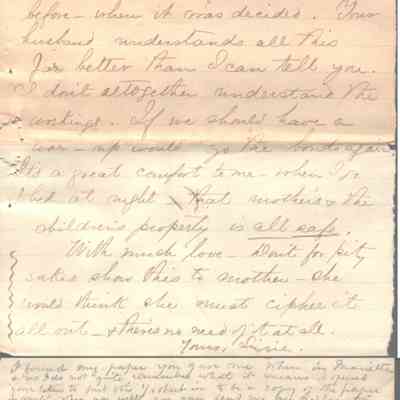 before - when it was decided. Your
husband understands all this
far better than I can tell you.
I don't altogether understand the
workings. If we should have a
war - up would go the bonds again
It's a great comfort to me - when I'm
bed at night that mother's & the
children's property is all safe.
With much love - Don't for pity
sakes show this to mother - she
would think she must cipher it
all out - & there's no need of it at all.
Yours, Lizzie.
I found my paper you gave me when in Marietta
I do not quite remember what it means. I
to be a copy of the paper